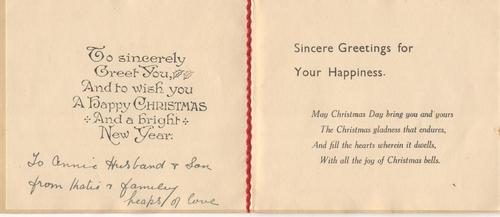 To sincerely
Greet You,
And to wish you
A Happy CHRISTMAS
And a bright
New Year.
To Annie Husband & Son
from Katie & family
heaps of love
Sincere Greetings for
Your Happiness.
May Christmas Day bring you and yours
The Christmas gladness that endures,
And fill the hearts wherein it dwells,
With all the joy of Christmas bells.